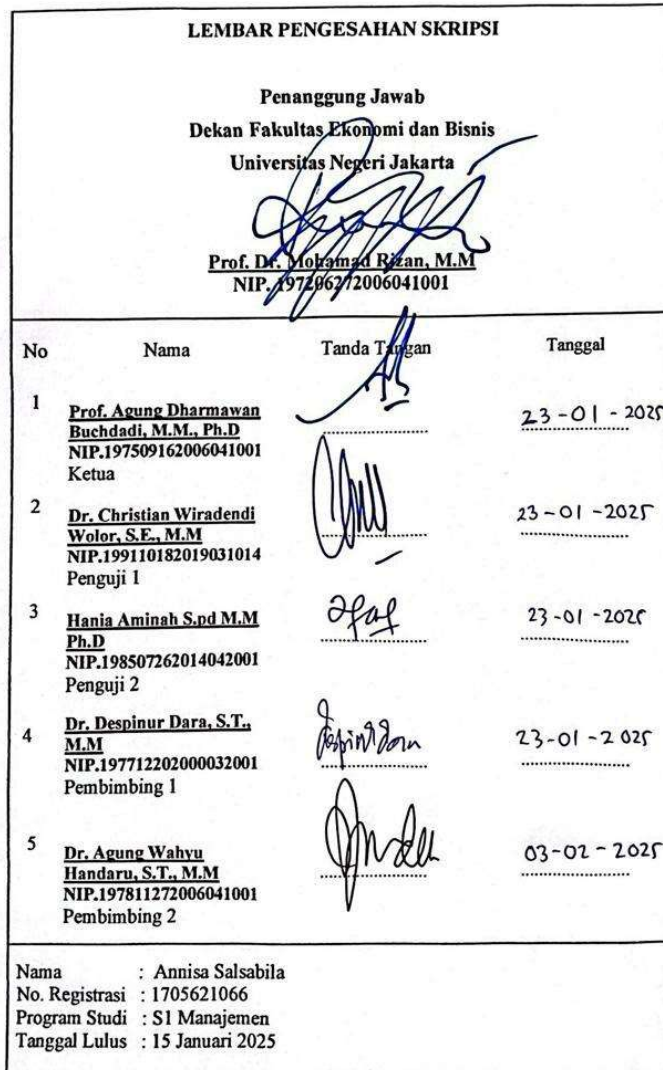 LEMBAR PENGESAHAN SKRIPSI
Penanggung Jawab
Dekan Fakultas Ekonomi dan Bisnis
Universitas Negeri Jakarta
Prof. Dr. Mohamad Rizan, M.M
NIP. 197206272006041001
No Nama Tanda Tangan Tanggal
1 Prof. Agung Dharmawan
Buchdadi, M.M., Ph.D 23-01-2025
NIP.197509162006041001
Ketua
2 Dr. Christian Wiradendi 23-01-2025
Wolor, S.E., M.M
NIP.199110182019031014
Penguji 1
3 Hania Aminah S.pd M.M 23-01-2025
Ph.D
NIP.198507262014042001
Penguji 2
4 Dr. Despinur Dara, S.T., 23-01-2025
M.M
NIP.197712202000032001
Pembimbing 1
5 Dr. Agung Wahyu 03-02-2025
Handaru, S.T., M.M
NIP.197811272006041001
Pembimbing 2
Nama : Annisa Salsabila
No. Registrasi : 1705621066
Program Studi : S1 Manajemen
Tanggal Lulus : 15 Januari 2025